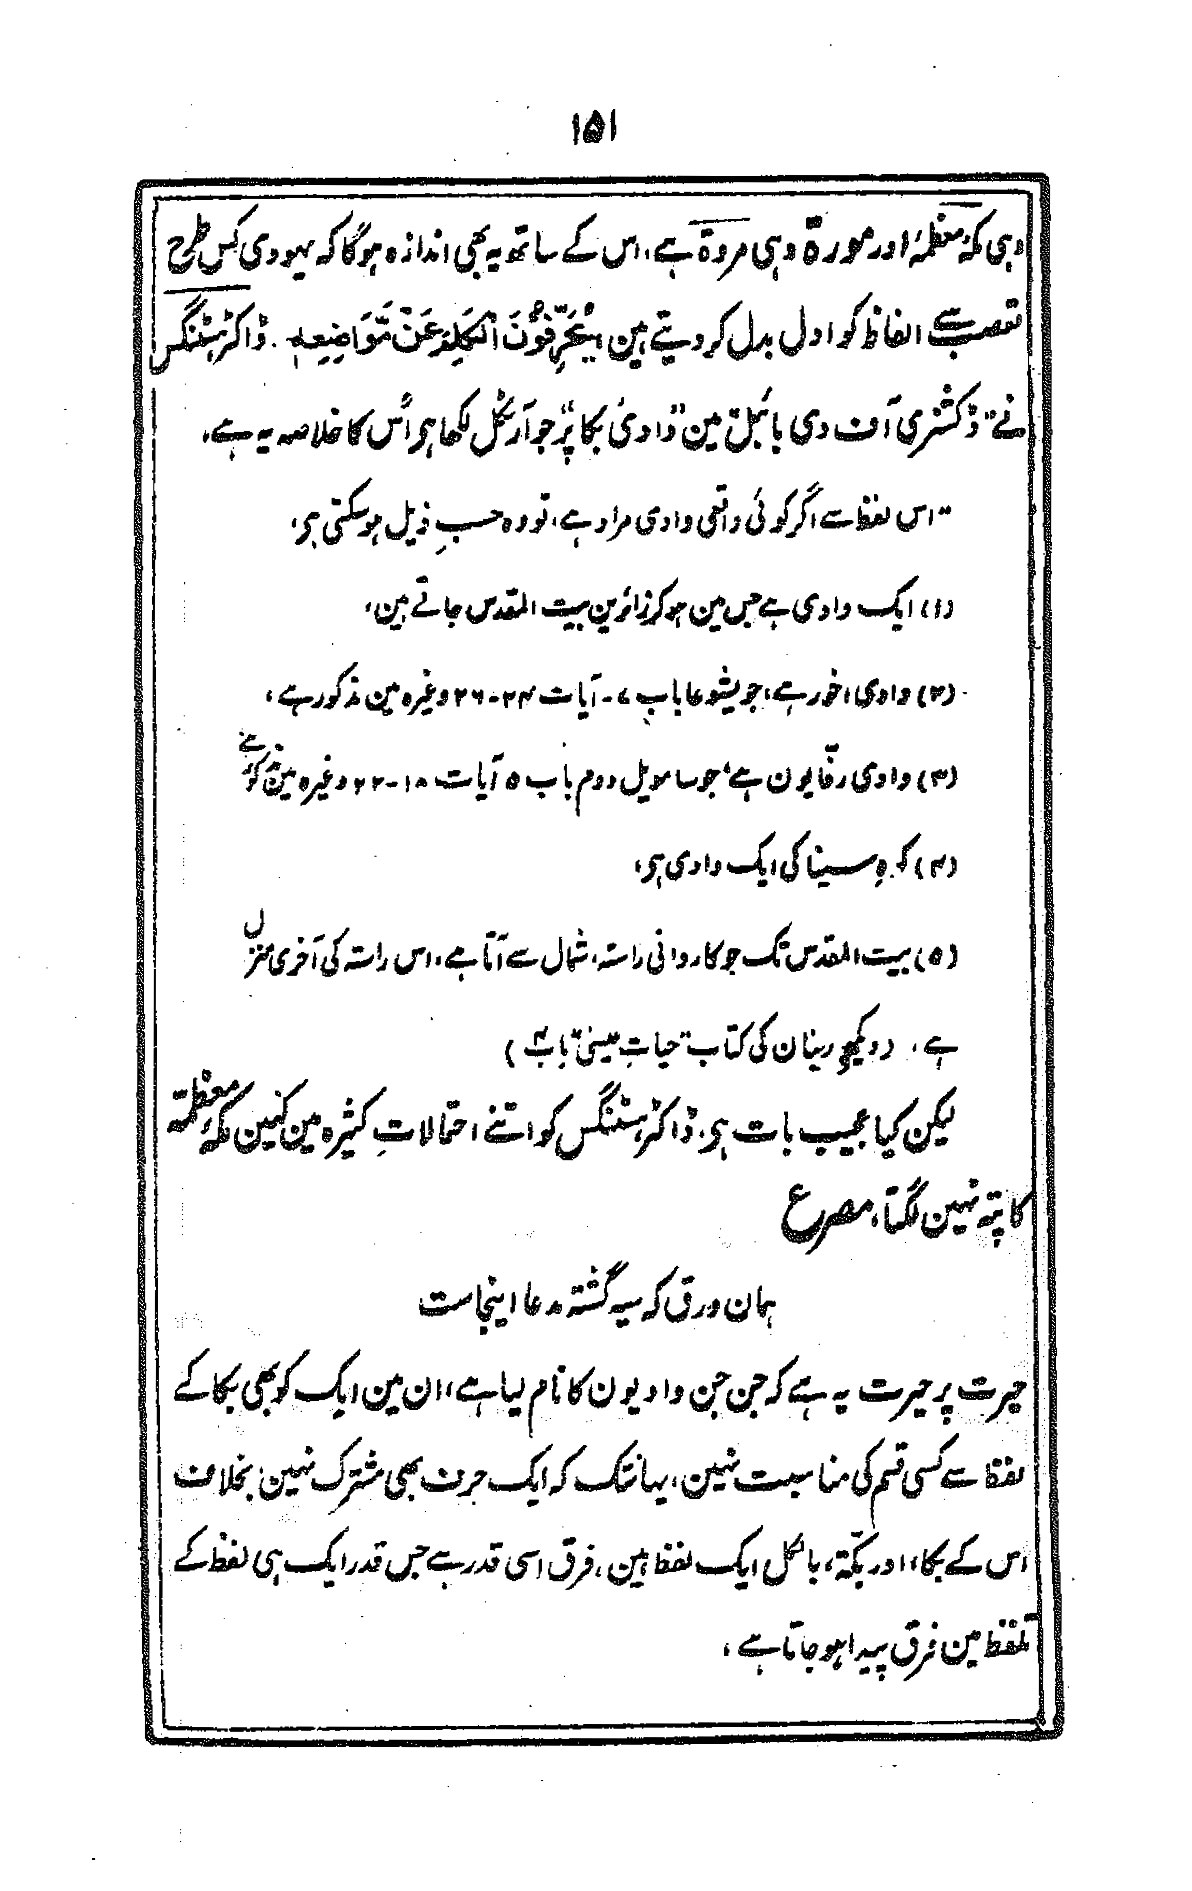 ۱۵۱
وہی مکہ معظمہ اور مورۃ وہی مروۃ ہے، اس کے ساتھ یہ بھی اندازہ ہوگا کہ یہودی کس طرح
تعصب سے الفاظ کو ادل بدل کر دیتے ہین یُحَرِّفُوْنَ الْکَلِمَ عَنْ مَّوَاضِعِہٖ. ڈاکٹر ہسٹنگس
نے "ڈکشنری آف دی بائبل" مین "وادیٔ بکا" پر جو آرٹکل لکھا ہی اُس کا خلاصہ یہ ہے،
"اس لفظ سے اگر کوئی واقعی وادی مراد ہے، تو وہ حسبِ ذیل ہو سکتی ہی،
(۱) ایک وادی ہے جس مین ہو کر زائرین بیت المقدس جاتے ہین،
(۲) وادی اخور ہے، جو یشوعا باب ۷- آیات ۲۴-۲۶ وغیرہ مین مذکور ہے،
(۳) وادی رفّایون ہے، جو سامویل دوم باب ۵ آیات ۱۸-۲۲ وغیرہ مین مذکور ہے
(۴) کوہِ سینا کی ایک وادی ہی،
(۵) بیت المقدس تک جو کاروانی راستہ، شمال سے آتا ہے، اس راستہ کی آخری منزل
ہے، (دیکھو رینان کی کتاب "حیاتِ عیسیٰ" باب ۴)
لیکن کیا عجیب بات ہی، ڈاکٹر ہسٹنگس کو اتنے احتمالاتِ کثیرہ مین کہین مکہٴ معظمہ
کا پتہ نہین لگتا، مصرع
ہمان ورق کہ سیہ گشتہ مدعا اینجاست
حیرت پر حیرت یہ ہے کہ جن جن وادیون کا نام لیا ہے، ان مین ایک کو بھی بکا کے
لفظ سے کسی قسم کی مناسبت نہین، یہانتک کہ ایک حرف بھی مشترک نہین، بخلاف
اس کے بکا، اور بکّۃ، بالکل ایک لفظ ہین، فرق اسی قدر ہے جس قدر ایک ہی لفظ کے
تلفظ مین فرق پیدا ہو جاتا ہے،